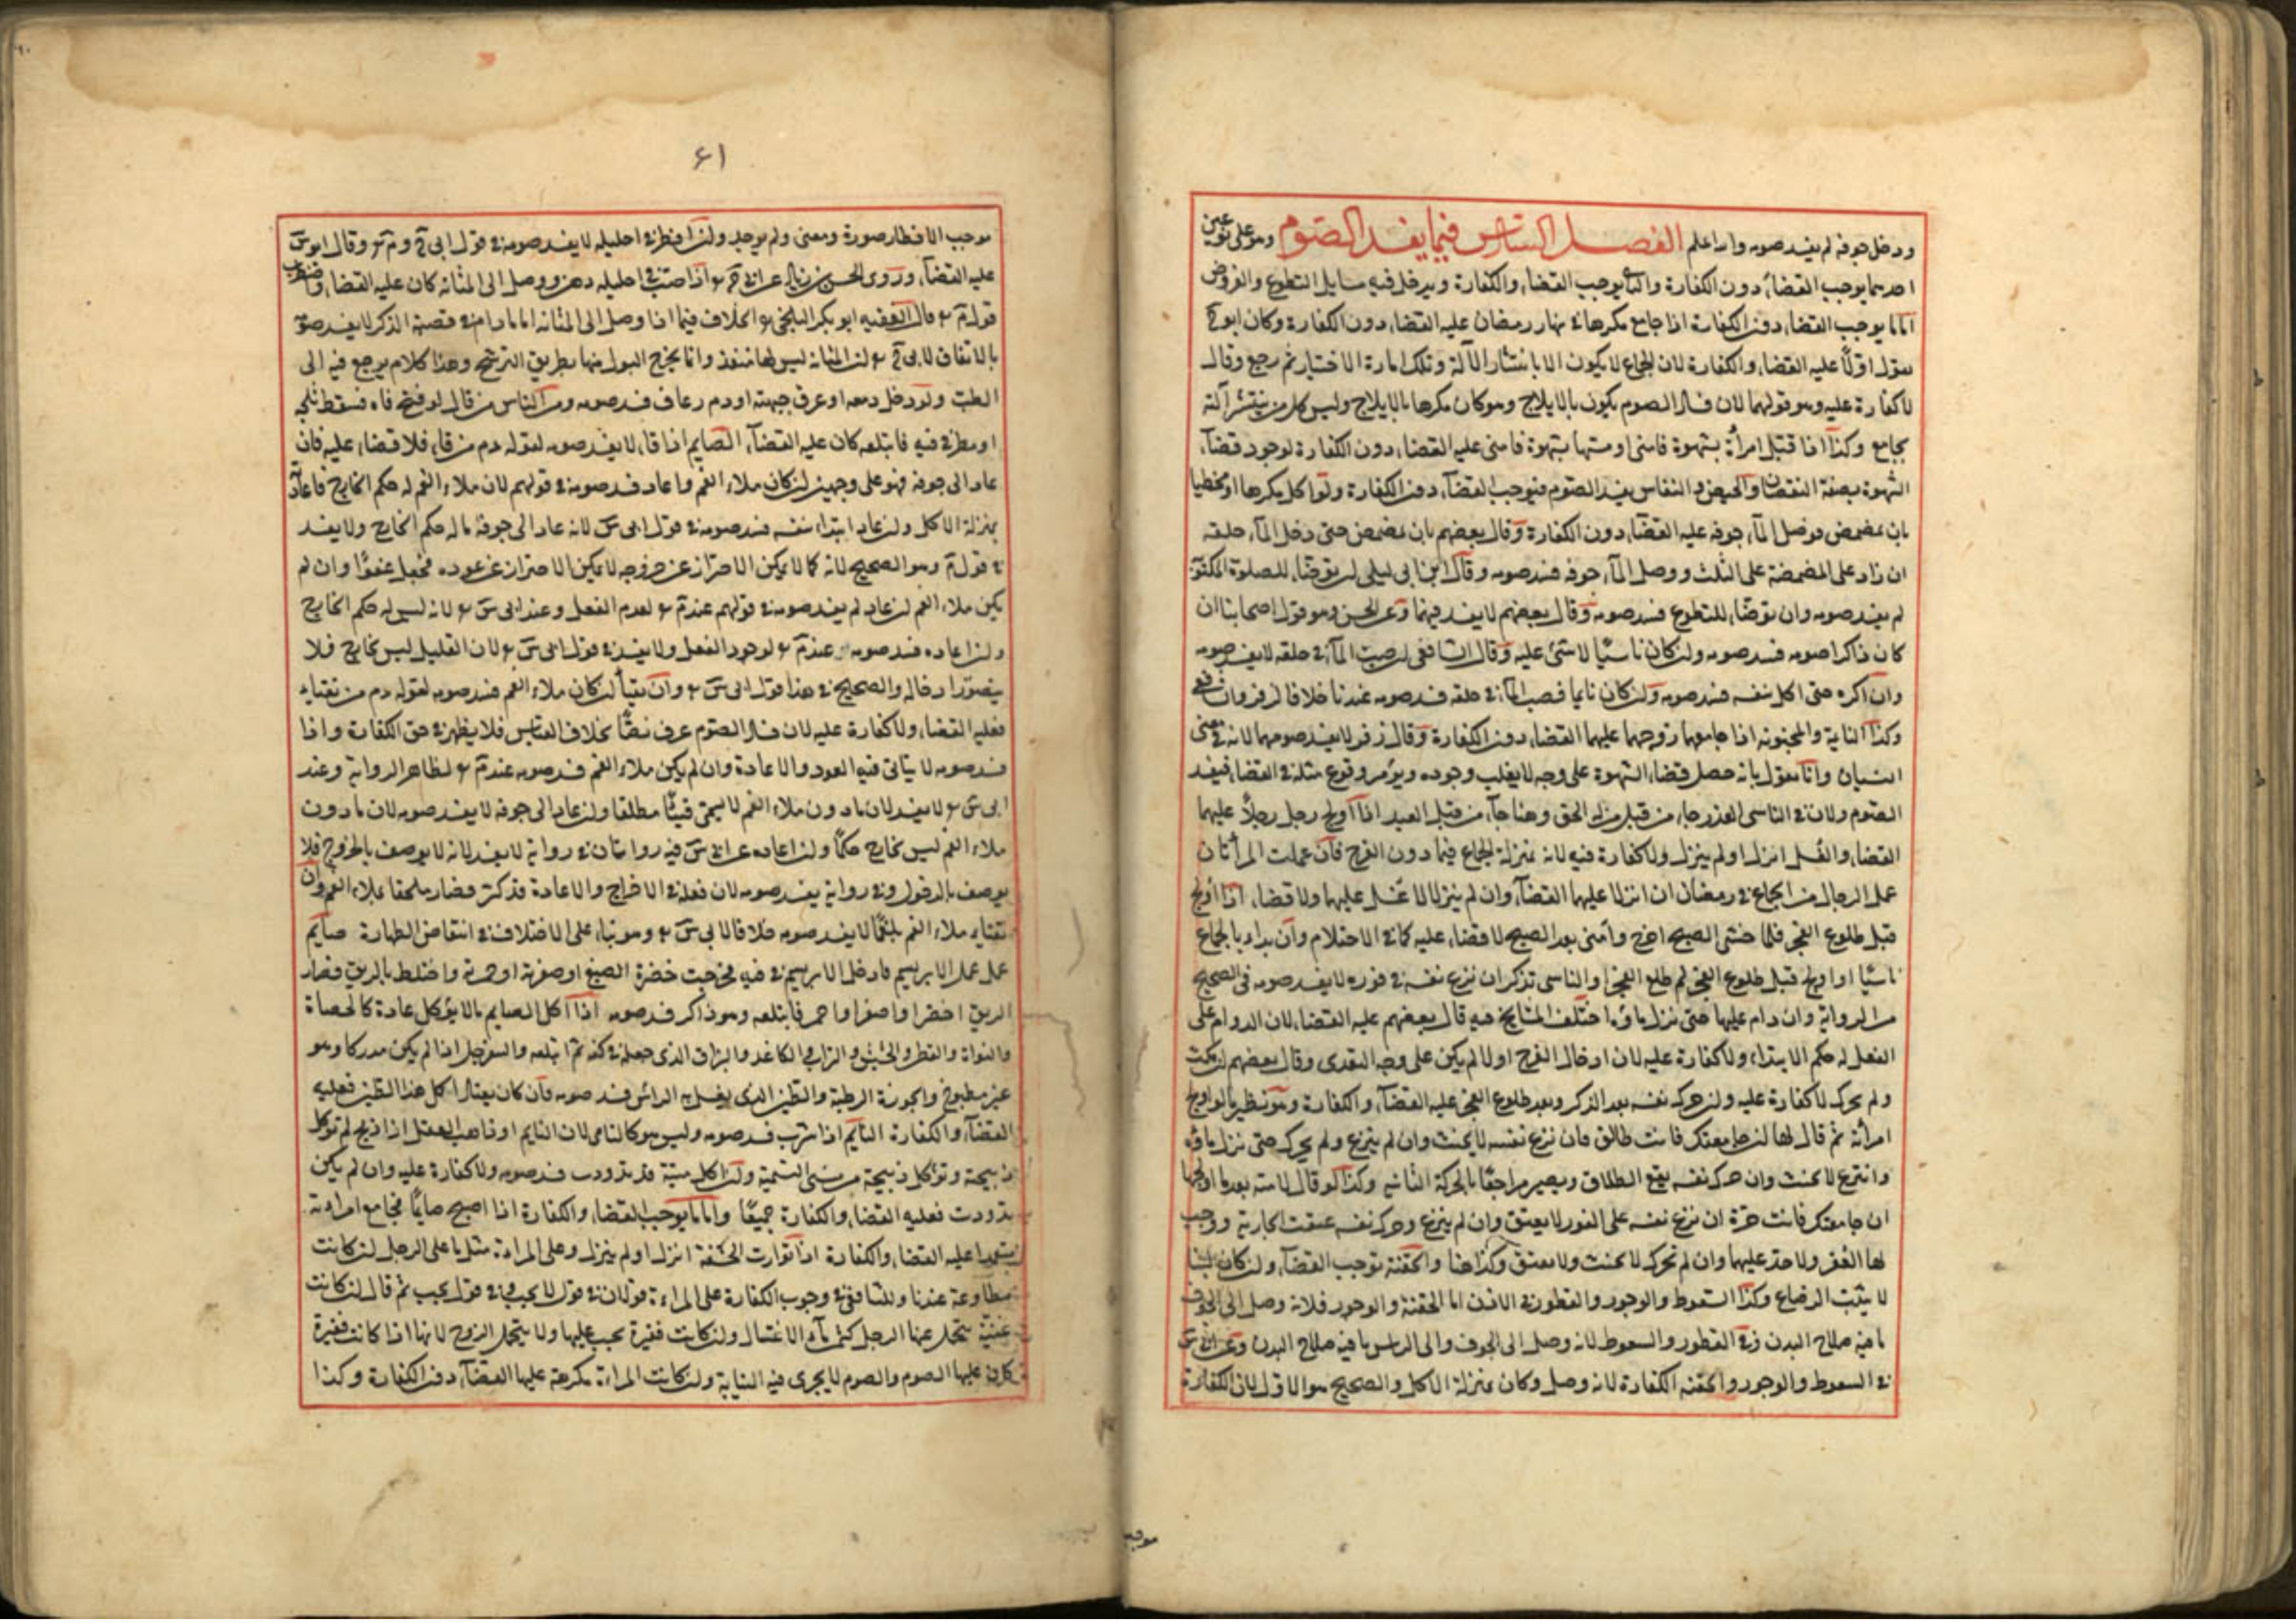 ودخل جوفه لم يفسد صومه والله اعلم الفصل السادس فيما يفسد الصوم وهو على نوعين
احدهما يوجب القضاء دون الكفارة والثاني يوجب القضاء والكفارة ويدخل فيه مسايل التطوع والفروض
اما ما يوجب القضاء دون الكفارة اذا جامع مكرها في نهار رمضان عليه القضاء دون الكفارة وكان ابو ح
يقول اولا عليه القضاء والكفارة لان الجماع لا يكون الا بانتشار الآلة وتلك امارة الاختيار ثم رجع وقال
لا كفارة عليه وهو قولهما لان فساد الصوم يكون بالايلاج وهو كان مكرها بالايلاج وليس كل من ينتشر آلته
يجامع وكذا اذا قبّل امرأة بشهوة فامنى او مسها بشهوة فامنى عليه القضاء دون الكفارة لوجود قضاء
الشهوة بصفة النقصان والحيض والنفاس يفسد الصوم فيوجب القضاء دون الكفارة ولو اكل مكرها او مخطيا
بان تمضمض فوصل الماء جوفه عليه القضاء دون الكفارة وقال بعضهم بان تمضمض حتى دخل الماء حلقه
ان زاد على المضمضة على الثلث ووصل الماء جوفه فسد صومه وقال ابن ابي ليلى ان توضاء للصلوة المكتوبة
لم يفسد صومه وان توضاء للتطوع فسد صومه وقال بعضهم لا يفسد فيهما وعن الحسن وهو قول اصحابنا ان
كان ذاكرا صومه فسد صومه وان كان ناسيا لا شئ عليه وقال الشافعي ان صب الماء في حلقه لا يفسد صومه
وان اكره حتى اكل بنفسه فسد صومه وان كان نايما فصب الماء في حلقه فسد صومه عندنا خلافا لزفر والشافعي
وكذا النايمة والمجنونة اذا جامعها زوجها عليهما القضاء دون الكفارة وقال زفر لا يفسد صومهما لانه في معنى
النسيان وانا نقول بانه حصل قضاء الشهوة على وجه لا يغلب وجوده ويؤمر وقوع مثله في القضاء فيفسد
الصوم ولان في الناسي العذر جاء من قبل من له الحق وهنا جاء من قبل العبد اذا اولج رجل رجلا عليهما
القضاء والغسل انزل او لم ينزل ولا كفارة فيه لانه بمنزلة الجماع فيما دون الفرج فان عملت المرأتان
عمل الرجال من الجماع في رمضان ان انزلتا عليهما القضاء وان لم ينزلا لا غسل عليهما ولا قضاء اذا اولج
قبل طلوع الفجر فلما خشى الصبح اخرج وامنى بعد الصبح لا قضاء عليه كما في الاحتلام وان بداء بالجماع
ناسيا او اولج قبل طلوع الفجر ثم طلع الفجر والناسي تذكر ان نزع نفسه في فوره لا يفسد صومه في الصحيح
من الرواية وان دام عليها حتى نزل ماؤه اختلف المشايخ فيه قال بعضهم عليه القضاء لان الدوام على
الفعل له حكم الابتداء ولا كفارة عليه لان ادخال الفرج اولا لم يكن على وجه التعدى وقال بعضهم ان مكث
ولم يحرك لا كفارة عليه وان حرك نفسه بعد الذكر وبعد طلوع الفجر عليه القضاء والكفارة وهو نظير ما لو اولج
امرأته ثم قال لها ان جامعتك فانت طالق فان نزع نفسه لا يحنث وان لم ينزع ولم يحرك حتى نزل ماؤه
وانتزع لا يحنث وان حرك نفسه يقع الطلاق ويصير مراجعا بالحركة الثانية وكذا لو قال لامته بعد ما اولجها
ان جامعتك فانت حرة ان نزع نفسه على الفور لا يعتق وان لم ينزع وحرك نفسه عتقت الجارية ووجب
لها العقر ولا حد عليهما وان لم يحرك لا يحنث ولا يعتق وكذا هنا والحقنة توجب القضاء وان كان لبنا
لا يثبت الرضاع وكذا السعوط والوجور والقطور في الاذن اما الحقنة والوجور فلانه وصل الى الجوف
ما فيه صلاح البدن وفي القطور والسعوط لانه وصل الى الجوف والى الراس ما فيه صلاح البدن وعن ابي س
في السعوط والوجور والحقنة الكفارة لانه وصل وكان بمنزلة الاكل والصحيح هو الاول لان الكفارة
موجب
٦١
موجب الافطار صورة ومعنى ولم يوجد وان اقطر في احليله لا يفسد صومه في قول ابي ح و م وقال ابو س
عليه القضاء وروى الحسن بن زياد عن ابي ح اذا صب في احليله دهن ووصل الى المثانة كان عليه القضاء واضطرب
قول م قال الفقيه ابو بكر البلخي الخلاف فيما اذا وصل الى المثانة اما ما دام في قصبة الذكر لا يفسد صومه
بالاتفاق لابي ح ان المثانة ليس لها منفذ وانما يخرج البول منها بطريق الترشح وهذا كلام يرجع فيه الى
الطب ولو دخل دمعه او عرق جبهته او دم رعاف فسد صومه ومن الناس من قال لو فتح فاه فسقط ثلجه
او مطر في فيه فابتلعه كان عليه القضاء الصايم اذا قاء لا يفسد صومه لقوله عم من قاء فلا قضاء عليه فان
عاد الى جوفه فهو على وجهين ان كان ملاء الفم واعاد فسد صومه في قولهم لان ملاء الفم له حكم الخارج فاعادته
بمنزلة الاكل وان عاد ابتداء بنفسه فسد صومه في قول ابي س لانه عاد الى جوفه ما له حكم الخارج ولا يفسد
في قول م وهو الصحيح لانه كما لا يمكن الاحتراز عن خروجه لا يمكن الاحتراز عن عوده فجعل عفوا وان لم
يكن ملاء الفم ان عاد لم يفسد صومه في قولهم عند م لعدم الفعل وعند ابي س لانه ليس له حكم الخارج
وان اعاده فسد صومه عند م لوجود الفعل ولا يفسد في قول ابي س لان القليل ليس بخارج فلا
يتصور ادخاله والصحيح في هذا قول ابي س وان تقيأ ان كان ملاء الفم فسد صومه لقوله عم من تقياء
فعليه القضاء ولا كفارة عليه لان فساد الصوم عرف نصا بخلاف القياس فلا يظهر في حق الكفارة واذا
فسد صومه لا يتاتى فيه العود والاعادة وان لم يكن ملاء الفم فسد صومه عند م لظاهر الرواية وعند
ابي س لا يفسد لان ما دون ملاء الفم لا يسمى قيئا مطلقا وان عاد الى جوفه لا يفسد صومه لان ما دون
ملاء الفم ليس بخارج حكما وان اعاده عن ابي س فيه روايتان في رواية لا يفسد لانه لا يوصف بالخروج فلا
يوصف بالدخول وفي رواية يفسد صومه لان فعله في الاخراج والاعادة قد كثر فصار ملحقا بملاء الفم وان
تقياء ملاء الفم بلغما لا يفسد صومه خلافا لابي س وهو بناء على الاختلاف في انتقاض الطهارة صايم
عمل عمل الابريسم فادخل الابريسم في فيه فخرجت خضرة الصبغ او صفرته او حمرته واختلط بالريق فصار
الريق اخضر او اصفر او احمر فابتلعه وهو ذاكر فسد صومه اذا اكل الصايم ما لا يؤكل عادة كالحصاة
والنواة والقطن والحشيش والتراب والكاغد والبزاق الذى جعله في كفه ثم ابتلعه والسفرجل اذا لم يكن مدركا وهو
غير مطبوخ والجوزة الرطبة والطين الذى يغسل به الرأس فسد صومه فان كان يعتاد اكل هذا الطين فعليه
القضاء والكفارة النايم اذا شرب فسد صومه وليس هو كالناسي لان النايم او ذاهب العقل اذا ذبح لم تؤكل
ذبيحته وتؤكل ذبيحة من نسي التسمية وان اكل ميتة قد تدودت فسد صومه ولا كفارة عليه وان لم يكن
تدودت فعليه القضاء والكفارة جميعا واما ما يوجب القضاء والكفارة اذا اصبح صايما فجامع امراءته
متعمدا عليه القضاء والكفارة اذا توارت الحشفة انزل او لم ينزل وعلى المراءة مثل ما على الرجل ان كانت
مطاوعة عندنا وللشافعي في وجوب الكفارة على المراءة قولان في قول لا يجب وفي قول يجب ثم قال ان كانت
غنية يتحمل عنها الرجل كثمن ماء الاغتسال وان كانت فقيرة يجب عليها ولا يتحمل الزوج لانها اذا كانت فقيرة
كان عليها الصوم والصوم لا يجرى فيه النيابة وان كانت المراءة مكرهة عليها القضاء دون الكفارة وكذا